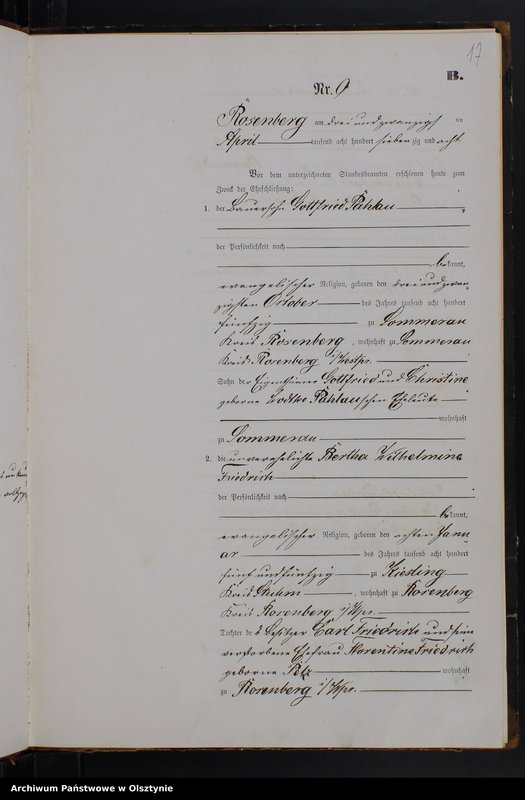 17
B.
Nr. 9
Rosenberg am drei und zwanzigsten
April tausend acht hundert siebenzig und acht
Vor dem unterzeichneten Standesbeamten erschienen heute zum
Zweck der Eheschließung:
1. der Bauersohn Gottfried Pählau
der Persönlichkeit nach
bekannt,
evangelischer Religion, geboren den drei und zwan-
zigsten October des Jahres tausend acht hundert
fünfzig zu Sommerau
Kreis Rosenberg, wohnhaft zu Sommerau
Kreis Rosenberg i/Westpr.
Sohn der Eigenthümer Gottfried und Christine
geborne Pählau'schen Eheleute
wohnhaft
zu Sommerau
2. die unverehelichte Bertha Wilhelmine
Friedrich
der Persönlichkeit nach
bekannt,
evangelischer Religion, geboren den achten Janu-
ar des Jahres tausend acht hundert
fünf und fünfzig zu Kiesling
Kreis Stuhm, wohnhaft zu Rosenberg
Kreis Rosenberg i/Wpr.
Tochter des Besitzer Carl Friedrich und seine
verstorbene Ehefrau Florentine Friedrich
geborne wohnhaft
zu Rosenberg i/Wpr.
Archiwum Państwowe w Olsztynie